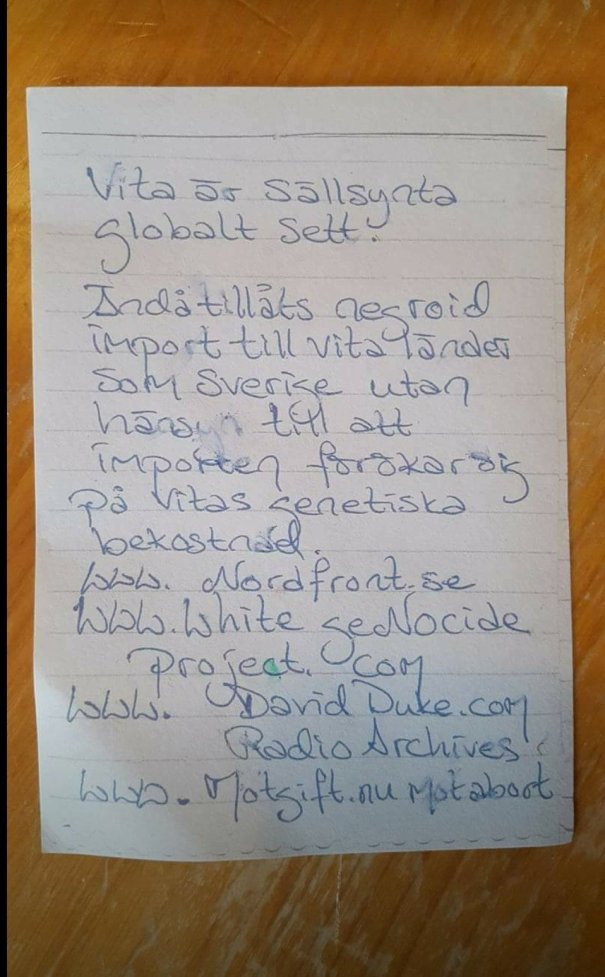 Vita är sällsynta
globalt sett.
Ändå tillåts negroid
import till vita länder
som Sverige utan
hänsyn till att
importen förökar sig
på vitas genetiska
bekostnad.
www. Nordfront.se
www.White geNocide
Project. com
www. David Duke.com
Radio Archives
www. Motgift.nu